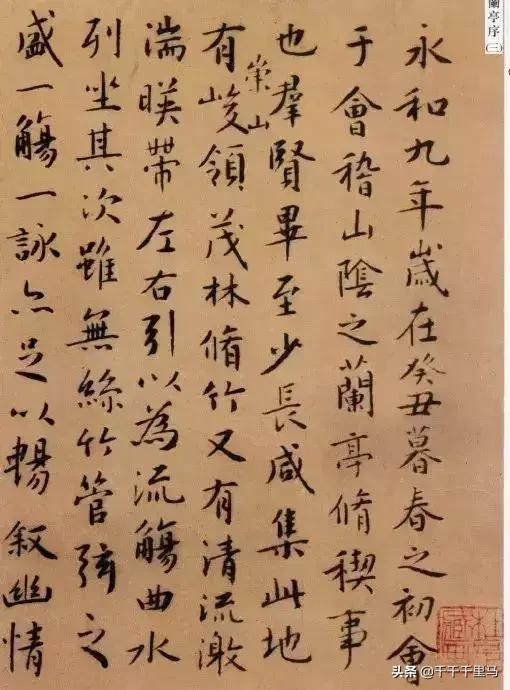 蘭亭序(三)
永和九年歲在癸丑暮春之初會
于會稽山陰之蘭亭脩稧事
也羣賢畢至少長咸集此地
有崇山峻領茂林脩竹又有清流激
湍暎帶左右引以為流觴曲水
列坐其次雖無絲竹管弦之
盛一觴一詠亦足以暢叙幽情
头条 @千千千里马